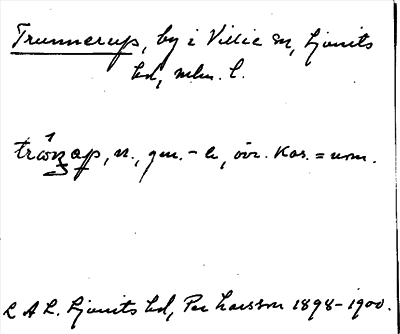 Trunnerup, by i Villie sn, Ljunits
hd, mlm. l.
n., gen. -s, övr. Kas. = nom.
L A L. Ljunits hd, Per Larsson 1898-1900.